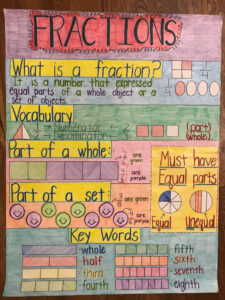 FRACTIONS
What is a fraction?
It is a number that expressed
equal parts of a whole object or a
set of objects
Vocabulary
1 → Numerator
Denominator
1
2
(part)
(whole)
Part of a whole:
are green
are purple
Must have
Equal parts
Part of a set:
are green
are purple
Equal
Unequal
Key Words
whole
half
third
fourth
fifth
sixth
seventh
eighth